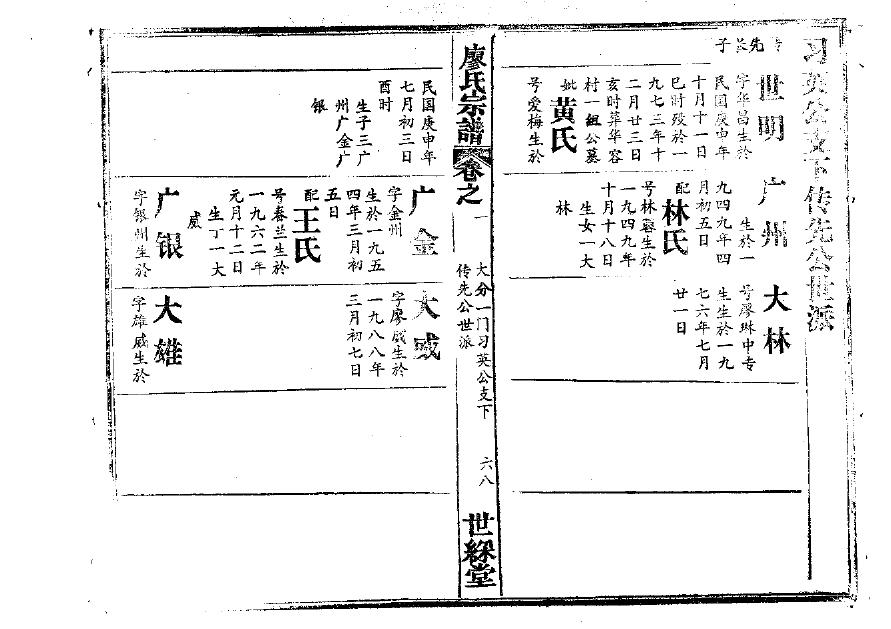 习英公支下传先公世派
传先长子
世明
字年昌生於
民国庚申年
十月十一日
巳时殁於一
九七三年十
二月廿三日
亥时葬华容
村一组公墓
妣黄氏
号爱梅生於
广州
生於一
九四九年四
月初五日
配林氏
号林容生於
一九四九年
十月十八日
生女一大
林
大林
号廖琳中专
生生於一九
七六年七月
廿一日
廖氏宗譜
卷之一
大分一门习英公支下
传先公世派
六八
世綵堂
民国庚申年
七月初三日
酉时
生子三广
州广金广
银
广金
字金州
生於一九五
四年三月初
五日
配王氏
号春兰生於
一九六二年
元月十二日
生丁一大
威
广银
字银州生於
大威
字廖威生於
一九八八年
三月初七日
大雄
字雄威生於